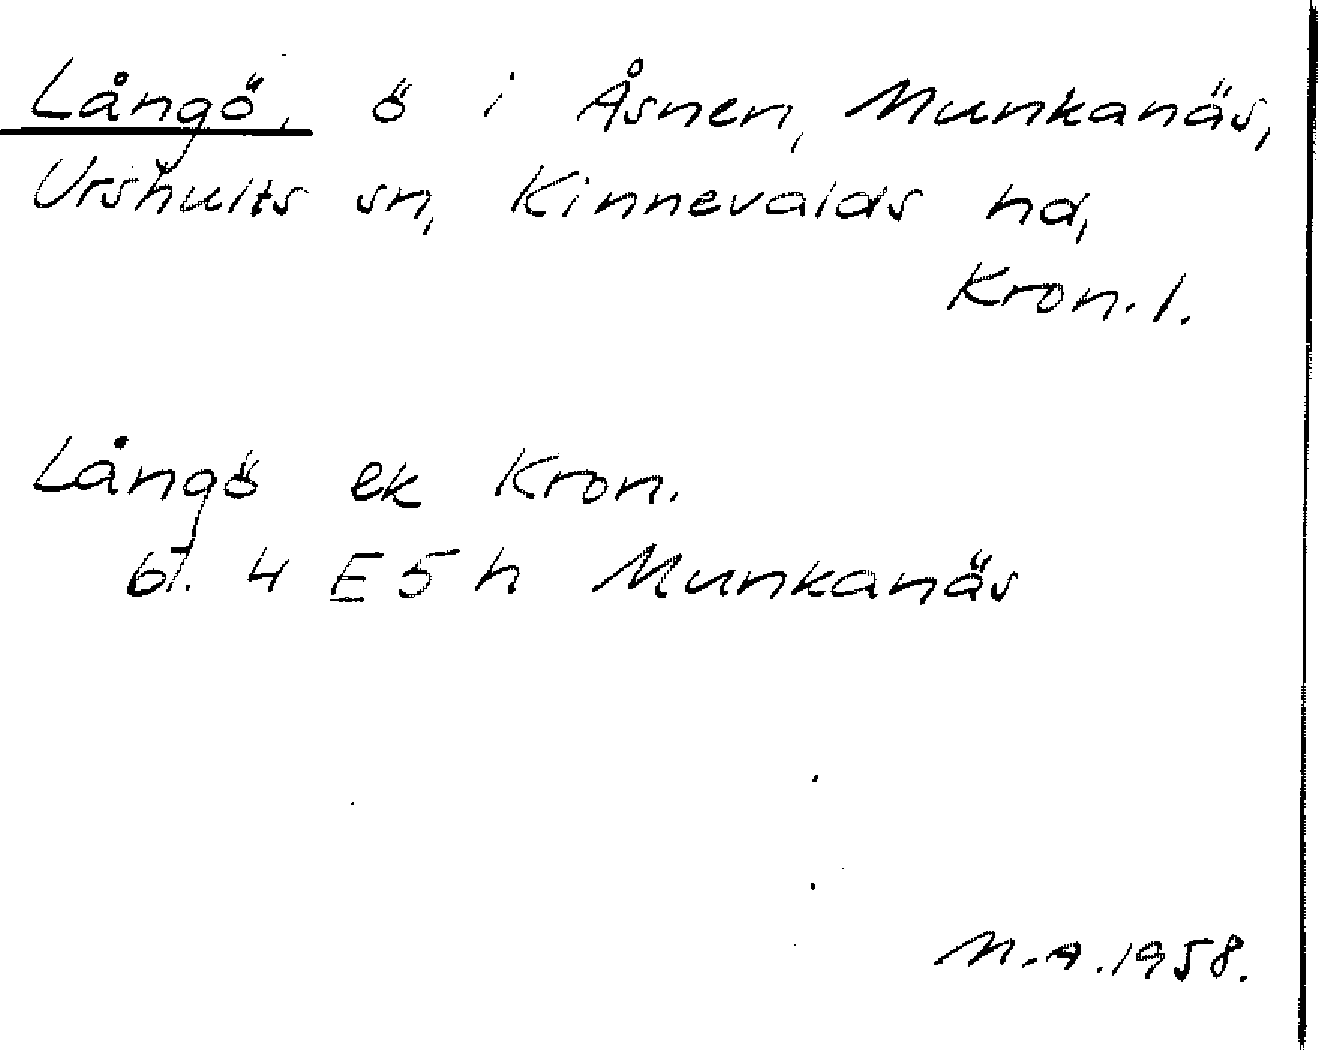 Långö, ö i Åsnen, Munkanäs,
Urshults sn, Kinnevalds hd,
Kron. l.
Långö ek Kron.
bl. 4 E 5 h Munkanäs
M.A. 1958.